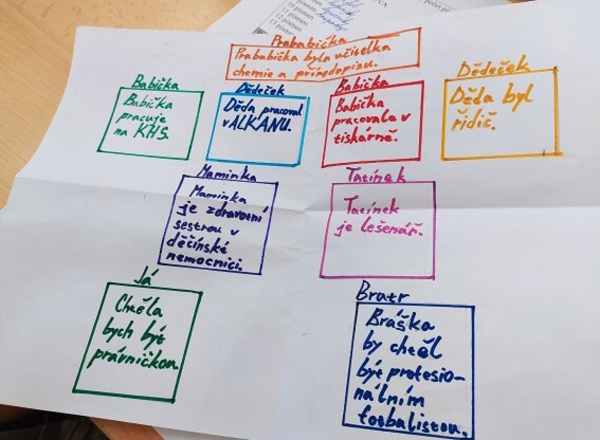 Prababička
Prababička byla učitelka
chemie a přírodopisu.
Babička
Babička
pracuje
na KHS.
Dědeček
Děda pracoval
v ALKANU.
Babička
Babička
pracovala v
tiskárně.
Dědeček
Děda byl
řidič.
Maminka
Maminka
je zdravotní
sestrou v
děčínské
nemocnici.
Tatínek
Tatínek
je lešenář.
Já
Chtěla
bych být
právničkou.
Bratr
Bráška
by chtěl
být profesio-
nálním
fotbalistou.